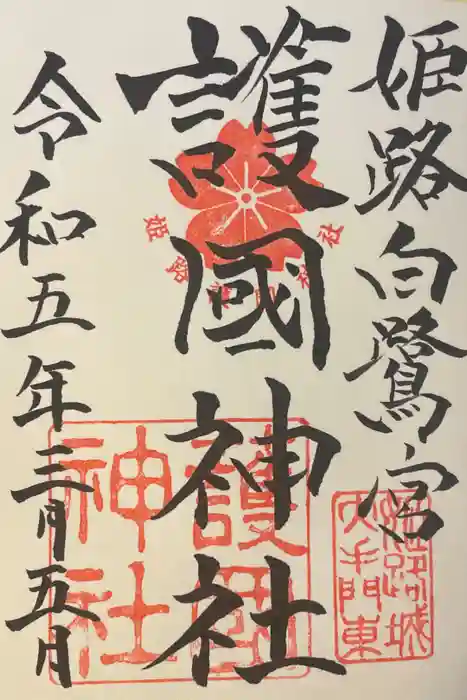 姫路白鷺宮
護國神社
令和五年三月五日
姫路護國神社
護國神社
姫路城大手門東